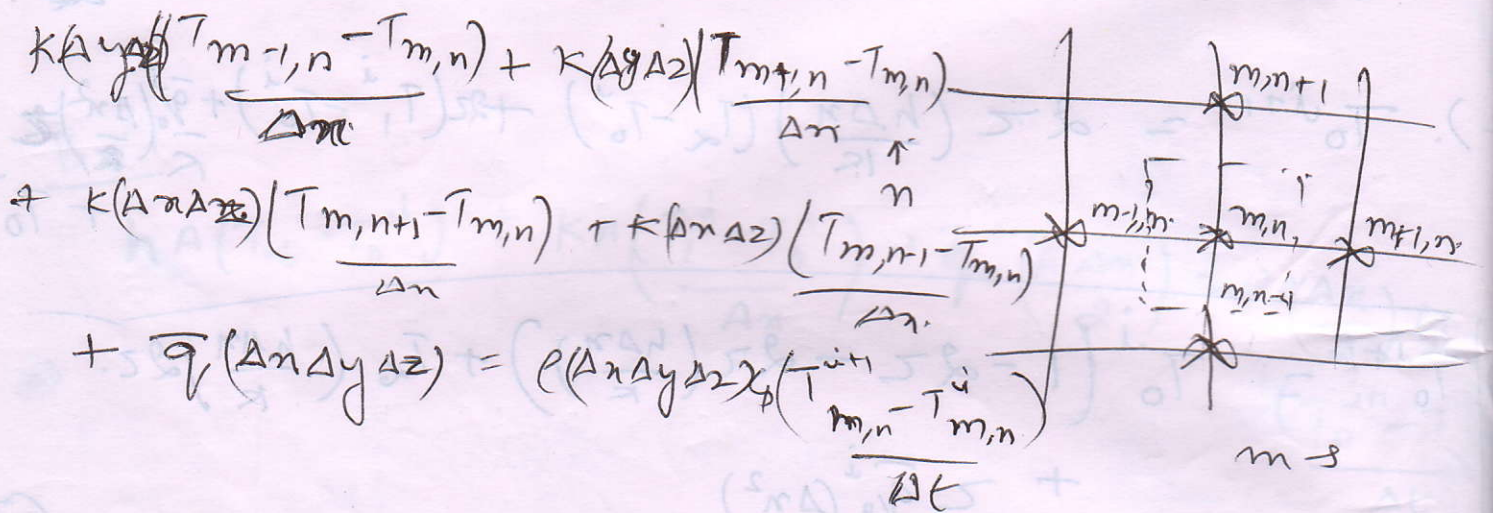 K(ΔyΔz)(T m-1,n - T m,n)/Δx + K(ΔyΔz)(T m+1,n - T m,n)/Δx
+ K(ΔxΔz)(T m,n+1 - T m,n)/Δx + K(Δx Δz)(T m,n-1 - T m,n)/Δx.
+ q̄ (ΔxΔyΔz) = ρ(ΔxΔyΔz)cp(T^i+1 m,n - T^i m,n)/Δt
m,n+1
↑
n
m-1,n.
m,n,
m+1,n.
m,n-1
m →